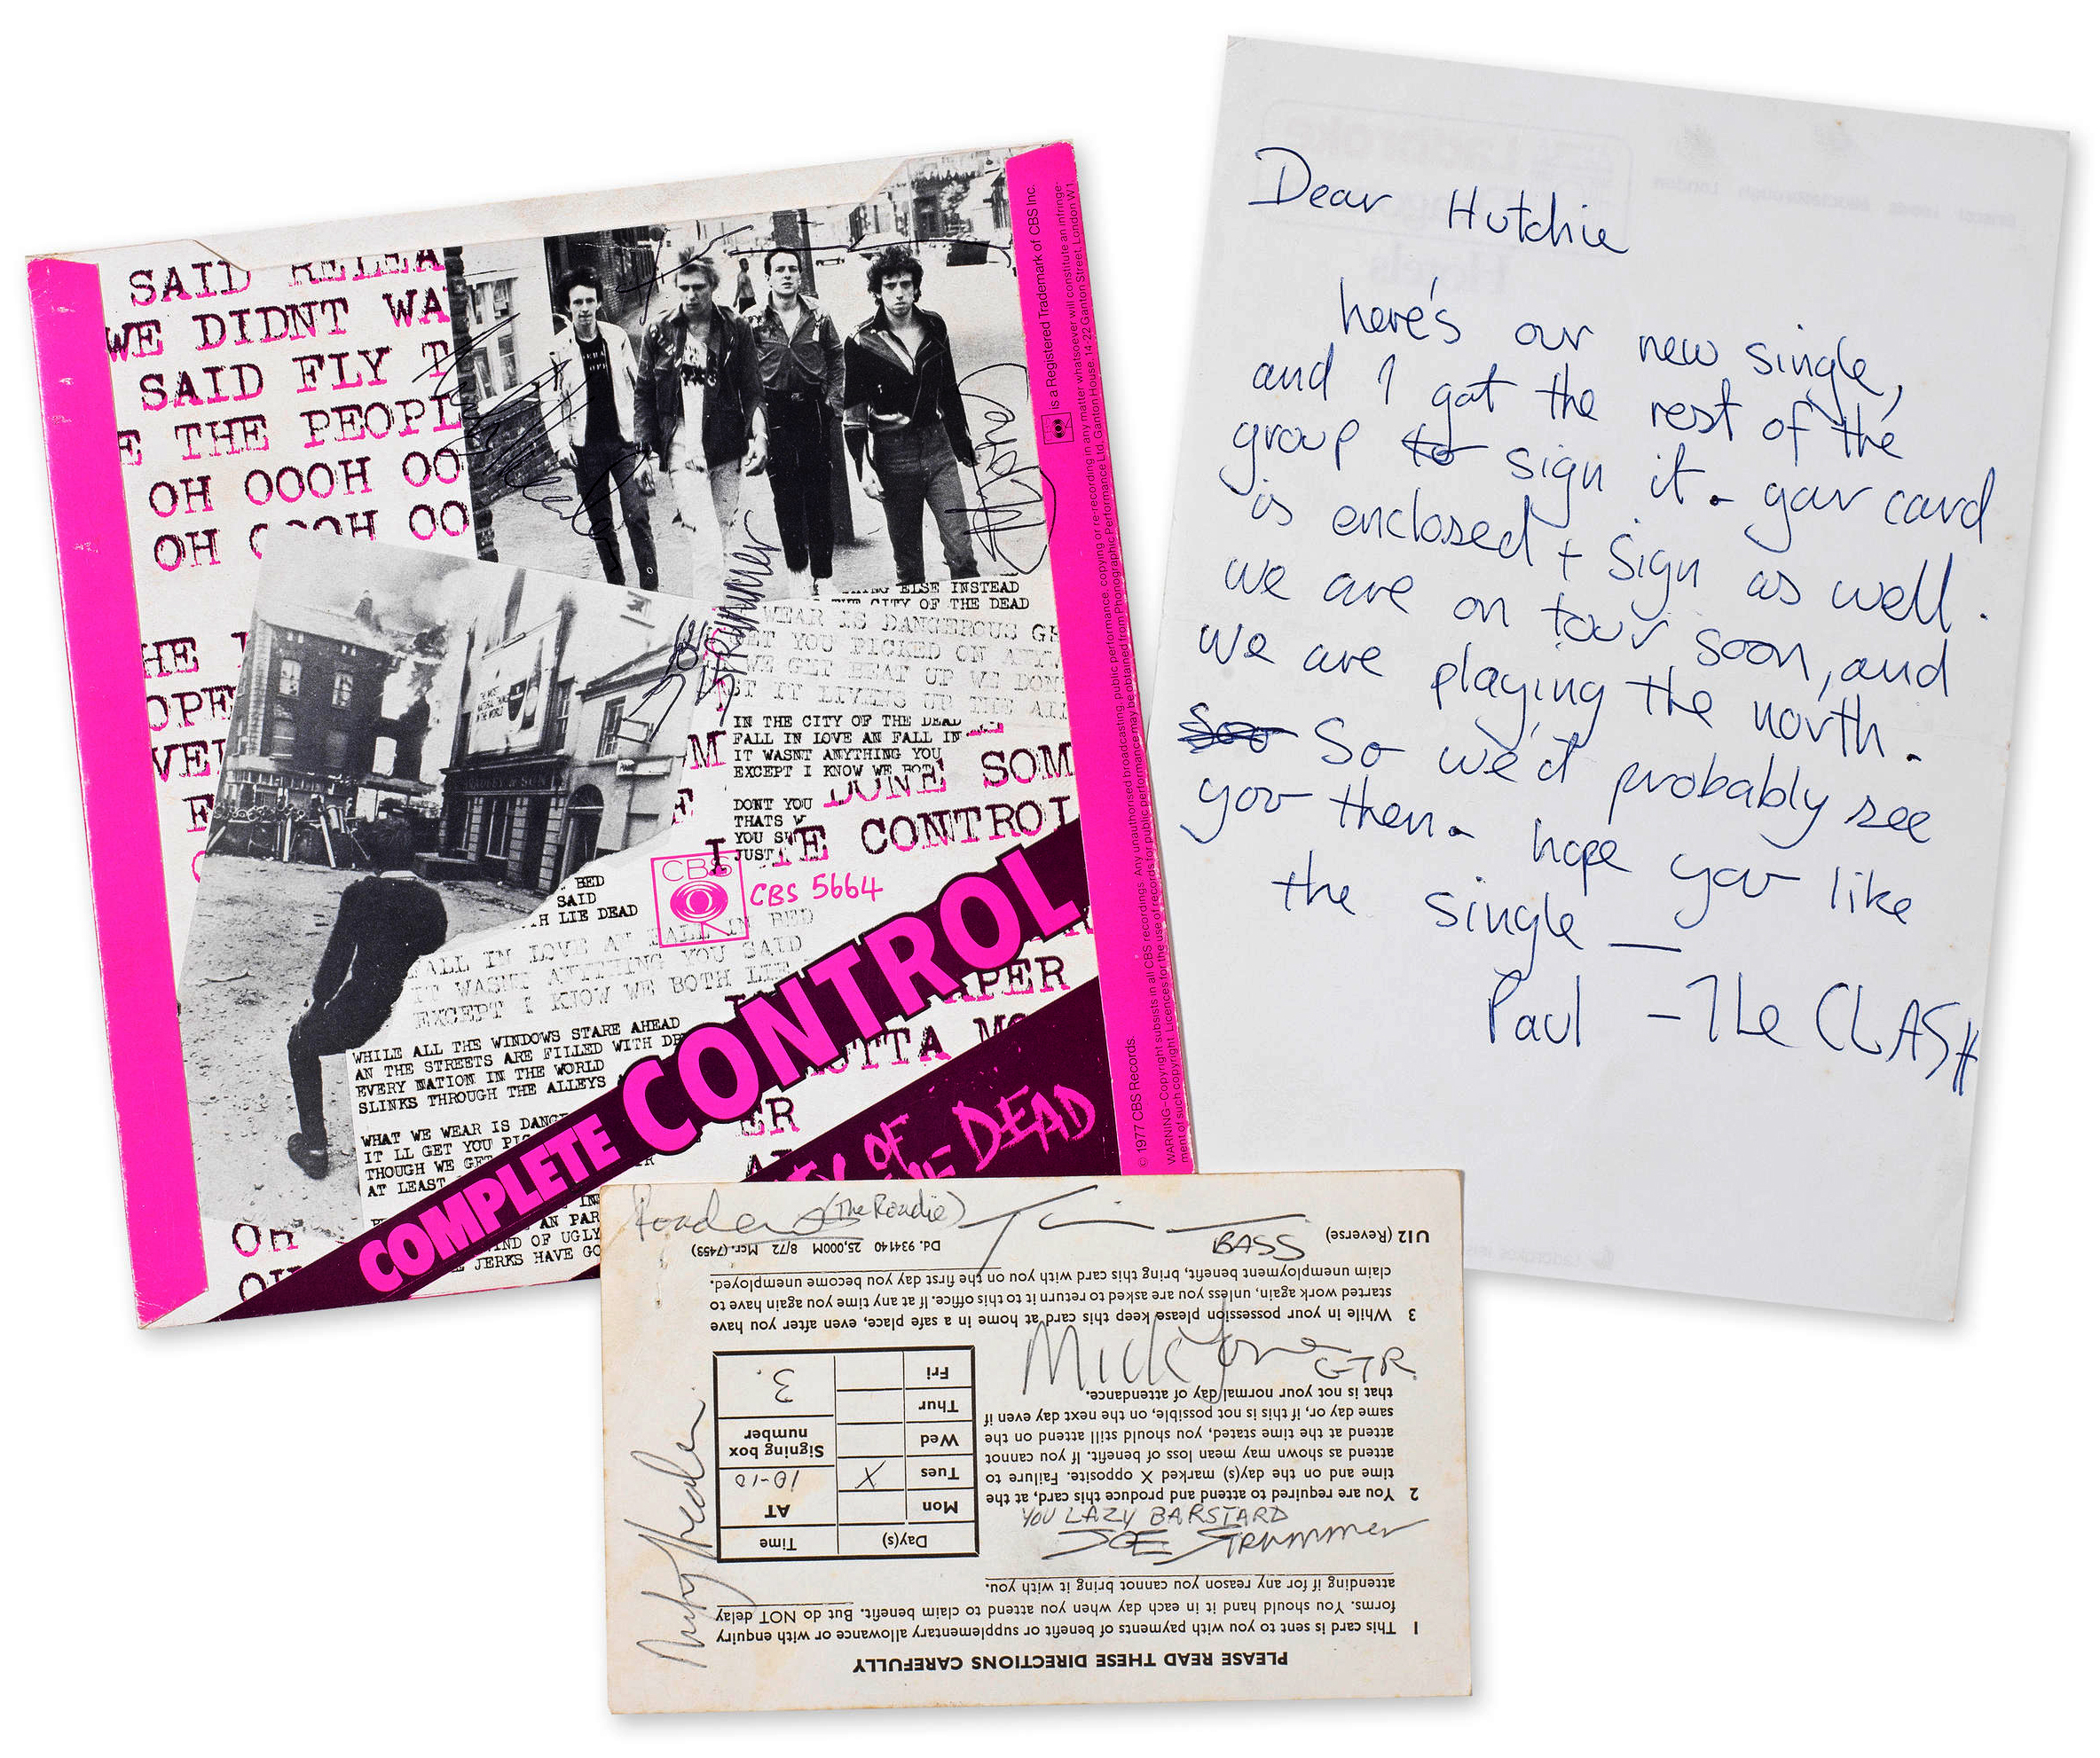 SAID RELEA
WE DIDNT WA
SAID FLY T
E THE PEOPL
OH OOOH OO
OH OOOH OO
HE
OPE
VE
ELSE INSTEAD
THE CITY OF THE DEAD
WEAR IS DANGEROUS
GET YOU PICKED ON
WE GET BEAT UP WE DON
ST IT LIVENS UP THE AI
IN THE CITY OF THE DEAD
FALL IN LOVE AN FALL IN
IT WASNT ANYTHING YOU
EXCEPT I KNOW WE BOT
DONT YOU
THATS
YOU
JUST
M
DONE SOM
CONTROL
JOE STRUMMER
CBS
CBS 5664
BED
SAID
H LIE DEAD
FALL IN LOVE AN FALL IN BED
IT WASNT ANYTHING YOU SAID
EXCEPT I KNOW WE BOTH LIE
WHILE ALL THE WINDOWS STARE AHEAD
AN THE STREETS ARE FILLED WITH DR
EVERY NATION IN THE WORLD
SLINKS THROUGH THE ALLEYS
WHAT WE WEAR IS DANG
IT LL GET YOU PIC
THOUGH WE GET
AT LEAST
AN PAR
KIND OF UGLY
JERKS HAVE GO
APER
UTTA MO
ER
OH
COMPLETE CONTROL
CITY OF THE DEAD
© 1977 CBS Records.
is a Registered Trademark of CBS Inc.
WARNING–Copyright subsists in all CBS recordings. Any unauthorised broadcasting, public performance, copying or re-recording in any matter whatsoever will constitute an infringe-
ment of such copyright. Licences for the use of records for public performance may be obtained from Phonographic Performance Ltd. Ganton House, 14-22 Ganton Street, London W1
Dear Hutchie
here's our new single,
and I got the rest of the
group to sign it. your card
is enclosed + sign as well.
we are on tour soon, and
we are playing the north.
Soo So we'd probably see
you then. hope you like
the single —
Paul - The CLASH
Roadent (The Roadie)
BASS
Nicky Headon
Mick Jones GTR.
YOU LAZY BARSTARD
JOE STRUMMER
PLEASE READ THESE DIRECTIONS CAREFULLY
1 This card is sent to you with payments of benefit or supplementary allowance or with enquiry
forms. You should hand it in each day when you attend to claim benefit. But do NOT delay
attending if for any reason you cannot bring it with you.
2 You are required to attend and produce this card, at the
time and on the day(s) marked X opposite. Failure to
attend as shown may mean loss of benefit. If you cannot
attend at the time stated, you should still attend on the
same day or, if this is not possible, on the next day even if
that is not your normal day of attendance.
Day(s) Time
Mon AT
Tues X 10-10
Wed Signing box
number
Thur
Fri 3.
3 While in your possession please keep this card at home in a safe place, even after you have
started work again, unless you are asked to return it to this office. If at any time you again have to
claim unemployment benefit, bring this card with you on the first day you become unemployed.
U12 (Reverse)
Dd. 934140 25,000M 8/72 Mcr. (7469)